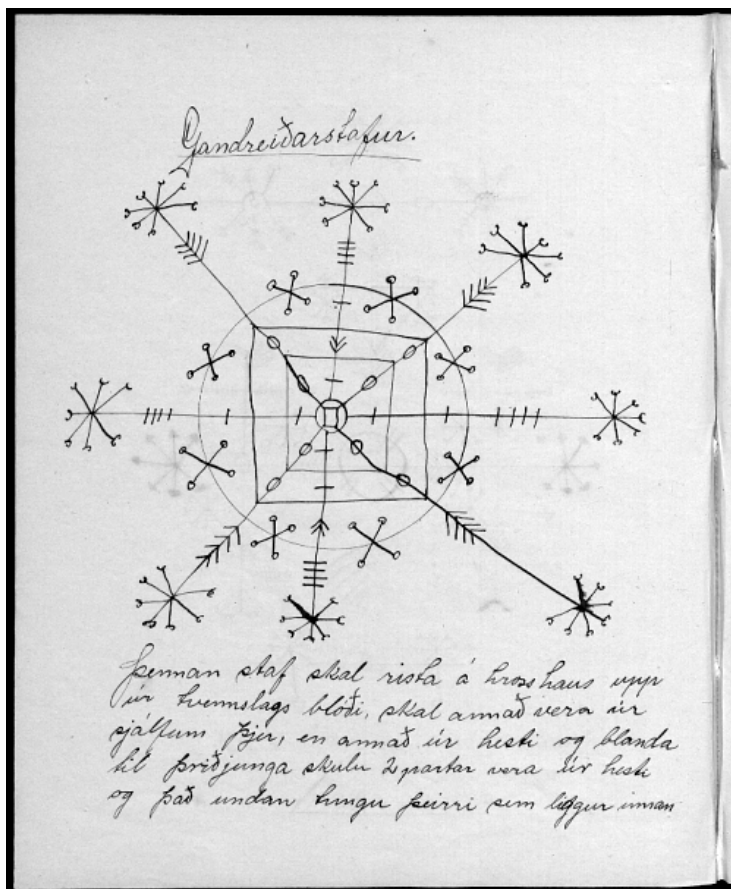 Gandreiðarstafur.
Þennan staf skal rista á hrosshaus upp
úr tvennslags blóði, skal annað vera úr
sjálfum þjer, en annað úr hesti og blanda
til þriðjunga skulu 2 partar vera úr hesti
og það undan tungu þeirri sem liggur innan